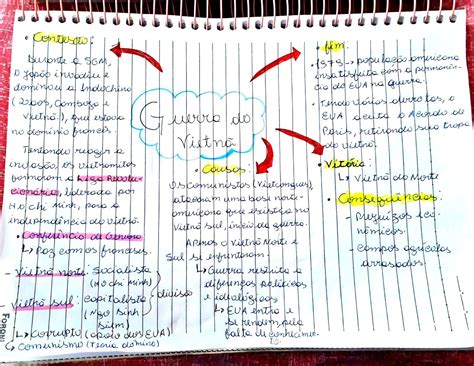 • Contexto:
Durante a 2GM,
o Japão invadiu e
dominou a Indochina
(Laos, Camboja e
Vietnã), que estava
no domínio francês.
Tentando reagir a
invasão, os vietnamitas
formaram a Liga Revolu-
cionária, liderada por
Ho chi Minh, para a
independência do Vietnã.
• Conferência de Genebra
↳ Paz com os franceses.
- Vietnã norte: Socialista
(Ho chi minh)
Vietnã sul: capitalista
(Ngo Dinh
Diem)
} divisão
↳ Corrupto (apoio dos EUA)
↳ Comunismo (Teoria dominó)
Guerra do
Vietnã
• Causas:
Os Comunistas (Vietcongues),
atacaram uma base norte-
americana que existia no
Vietnã sul, início da guerra.
Apenas o Vietnã Norte e
Sul se enfrentaram.
↳ Guerra restrita a
diferenças políticas
e ideológicas
↳ EUA entra e
se rendem pela
falta de conhecimen-
to
• fim:
1975 → população americana
insatisfeita com a permanên-
cia do EUA na guerra.
• Tendo várias derrotas, o
EUA aceita o Acordo de
Paris, retirando sua tropa
do vietnã.
• Vitória:
↳ Vietnã do Norte
• Consequências:
- Prejuízos eco-
nômicos.
- campos agrícolas
arrasados.
FORONI